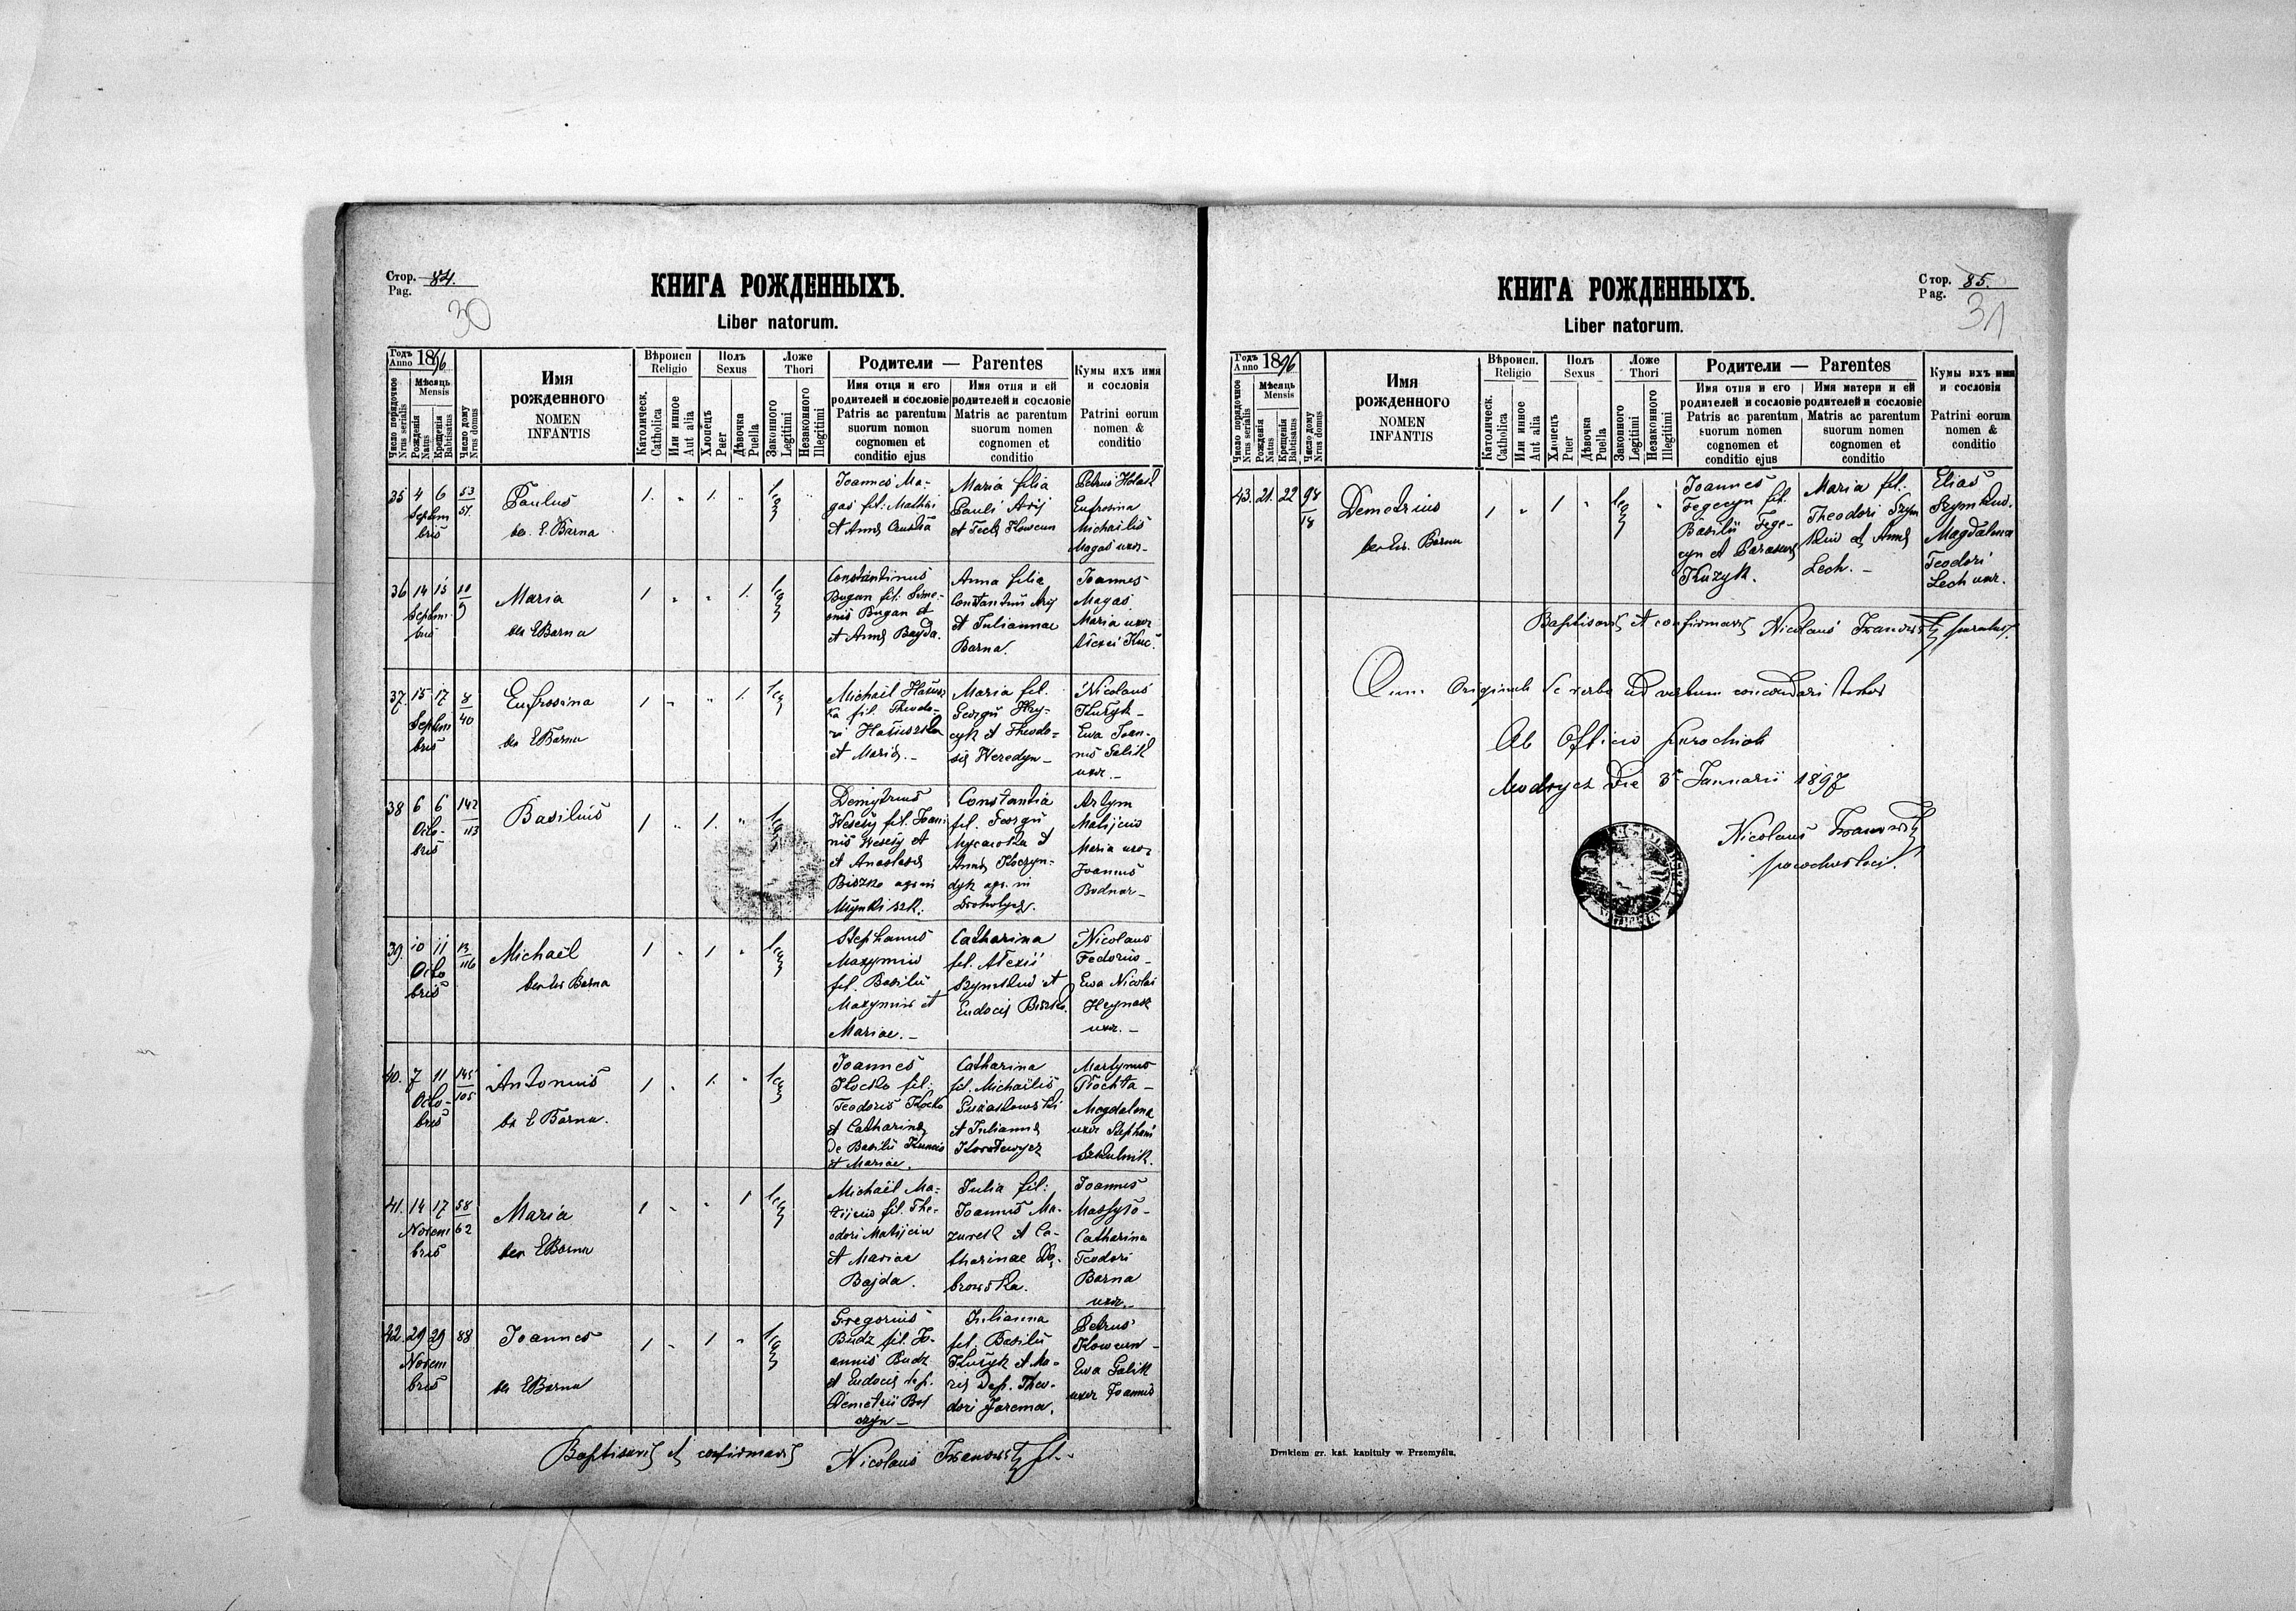 Стор. 84.
Pag.
30
КНИГА РОЖДЕННЫХЪ.
Liber natorum.
Годъ Anno 1896
Мѣсяць Mensis
Число порядочное Nrus serialis
Рожденія Natus
Крещенія Babtisatus
Число дому Nrus domus
Имя рожденного
NOMEN INFANTIS
Вѣроисп Religio
Католическ. Catholica
Или инное Aut alia
Полъ Sexus
Хлопецъ Puer
Дѣвочка Puella
Ложе Thori
Законного Legitimi
Незаконного Illegitimi
Родители — Parentes
Имя отця и его родителей и сословіе
Patris ac parentum suorum nomon cognomen et conditio ejus
Имя отця и ей родителей и сословіе
Matris ac parentum suorum nomen cognomen et conditio
Кумы ихъ имя и сословія
Patrini eorum nomen & conditio
35 4 6 53/51
Septem
bris
Paulus
E. Barna
Joannes Ma-
gas fil: Mathiae
et Annae
Maria filia
Pauli
et Tecla Kowcun
Petrus
Eufrosina
Michaelis
Magas uxor
36 14 15 10/9
Septem
bris
Maria
E Barna
Constantinus
Bugan fil. Sime-
onis Bugan et
et Annae Bajda.
Anna filia
Constantini
et Juliannae
Barna.
Joannes
Magas
Maria uxor
Alexei Kuc.
37. 15 17 8/40
Septem
bris
Eufrosina
E Barna
Michael
fil. Theodo-
ri
et Mariae.
Maria fil.
Georgii Hry-
cyk et Theodo-
siae Weredyn
Nicolaus
Kuryk
Ewa Joan-
nis Galik
uxor.
38 6 6 142/113
Octo-
bris
Basilius
Demytrius
Wesely fil. Joan-
nis Wesely et
et Anastasiae
Biszko agr. in
Constantia
fil. Georgii
et
Annae
agr. in
Drohobycz.
Artym
Matijciw
Maria uxor
Joannis
Bodnar
39. 10 11 13/116
Octo
bris
Michael
Barna
Stephanus
Maxymiw
fil. Basilii
Maxymiw et
Mariae.
Catharina
fil. Alexii
Szymkiw et
Eudociae Biszko.
Nicolaus
Fedoriw
Ewa Nicolai
Hrynasz
uxor.
40. 7 11 145/105
Octo-
bris
Antonius
E Barna.
Joannes
Klocko fil.
Teodoris Klocko
et Catharinae
de Basilii
et Mariae.
Catharina
fil. Michaelis
et Juliannae
Martynus
Plochta
Magdalena
uxor Stephani
Szkulnik.
41. 14 17 58/62
Novem
bris
Maria
E Barna
Michael Ma-
tijciw fil. The-
odori Matijciw
et Mariae
Bajda.
Julia fil:
Joannis Ma-
zurek et Ca-
tharinae Do-
browska.
Joannes
Catharina
Teodori
Barna
uxor.
42. 29 29 88
Novem
bris
Joannes
E Barna
Gregorius
Budz fil. Jo-
annis Budz
et Eudociae
Demetrii
Julianna
fil. Basilii
Kuryk et Ma-
riae Theo-
dori Jarema.
Petrus
Kowcun
Ewa Galik
uxor Joannis
Baptisavit et confirmavit Nicolaus Iwanowski
Стор. 85.
Pag.
31
КНИГА РОЖДЕННЫХЪ.
Liber natorum.
Годъ Anno 1896
Мѣсяць Mensis
Число порядочное Nrus serialis
Рожденія Natus
Крещенія Babtisatus
Число дому Nrus domus
Имя рожденного
NOMEN INFANTIS
Вѣроисп. Religio
Католическ. Catholica
Или инное Aut alia
Полъ Sexus
Хлопецъ Puer
Дѣвочка Puella
Ложе Thori
Законного Legitimi
Незаконного Illegitimi
Родители — Parentes
Имя отця и его родителей и сословіе
Patris ac parentum suorum nomen cognomen et conditio ejus
Имя матери и ей родителей и сословіе
Matris ac parentum suorum nomen cognomen et conditio
Кумы ихъ имя и сословія
Patrini eorum nomen & conditio
43. 21. 22 98/18
Demetrius
Barna
Joannes
Fegecyn fil.
Basilii Fege-
cyn et Parascevae
Kuzyk.
Maria fil.
Theodori Szym
kiw et Annae
Lech.
Elias
Szymkiw.
Magdalena
Teodori
Lech uxor.
Baptisavit et confirmavit Nicolaus Iwanowski parochus.
Cum Originali de verbo ad verbum concordari testor
Ab Officio parochiali
Modrycz Die 3 Januarii 1897
Nicolaus Iwanowski
parochus loci.
Drukiem gr. kat. kapituły w Przemyślu.